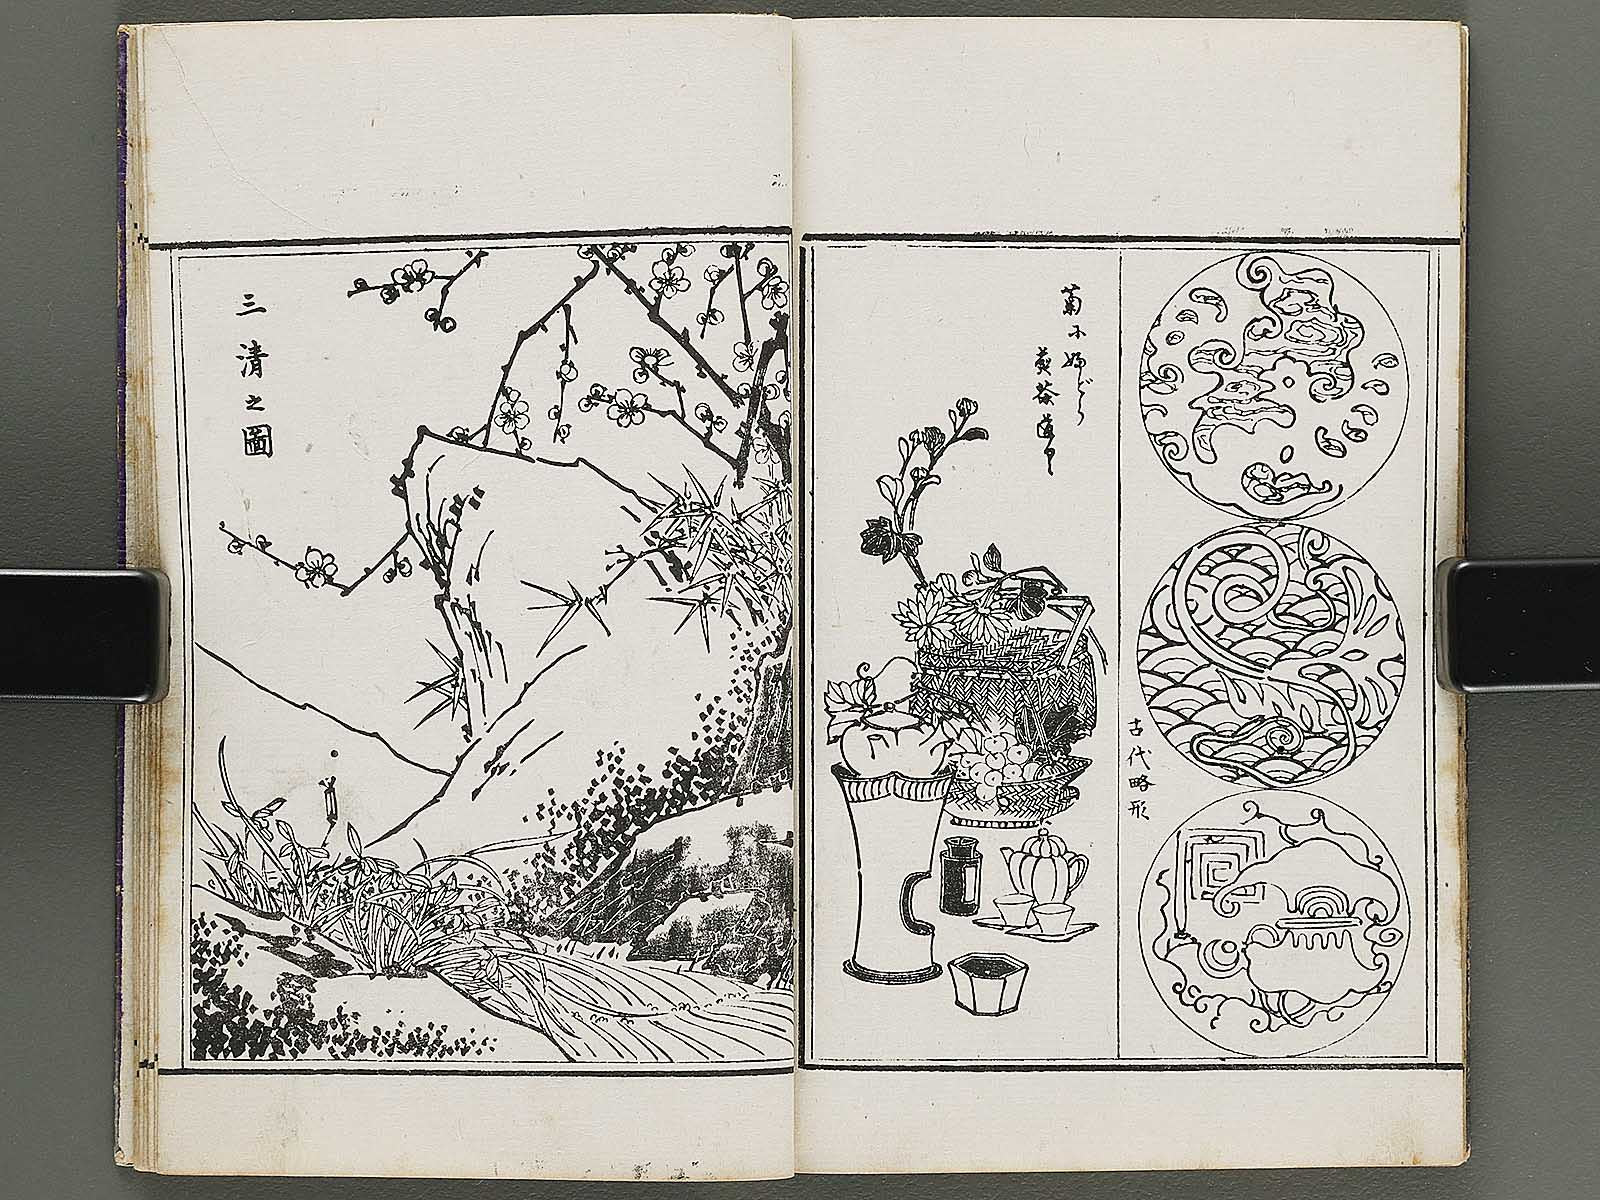 古代略形
菊に婦どう
煎茶道具
三清之圖